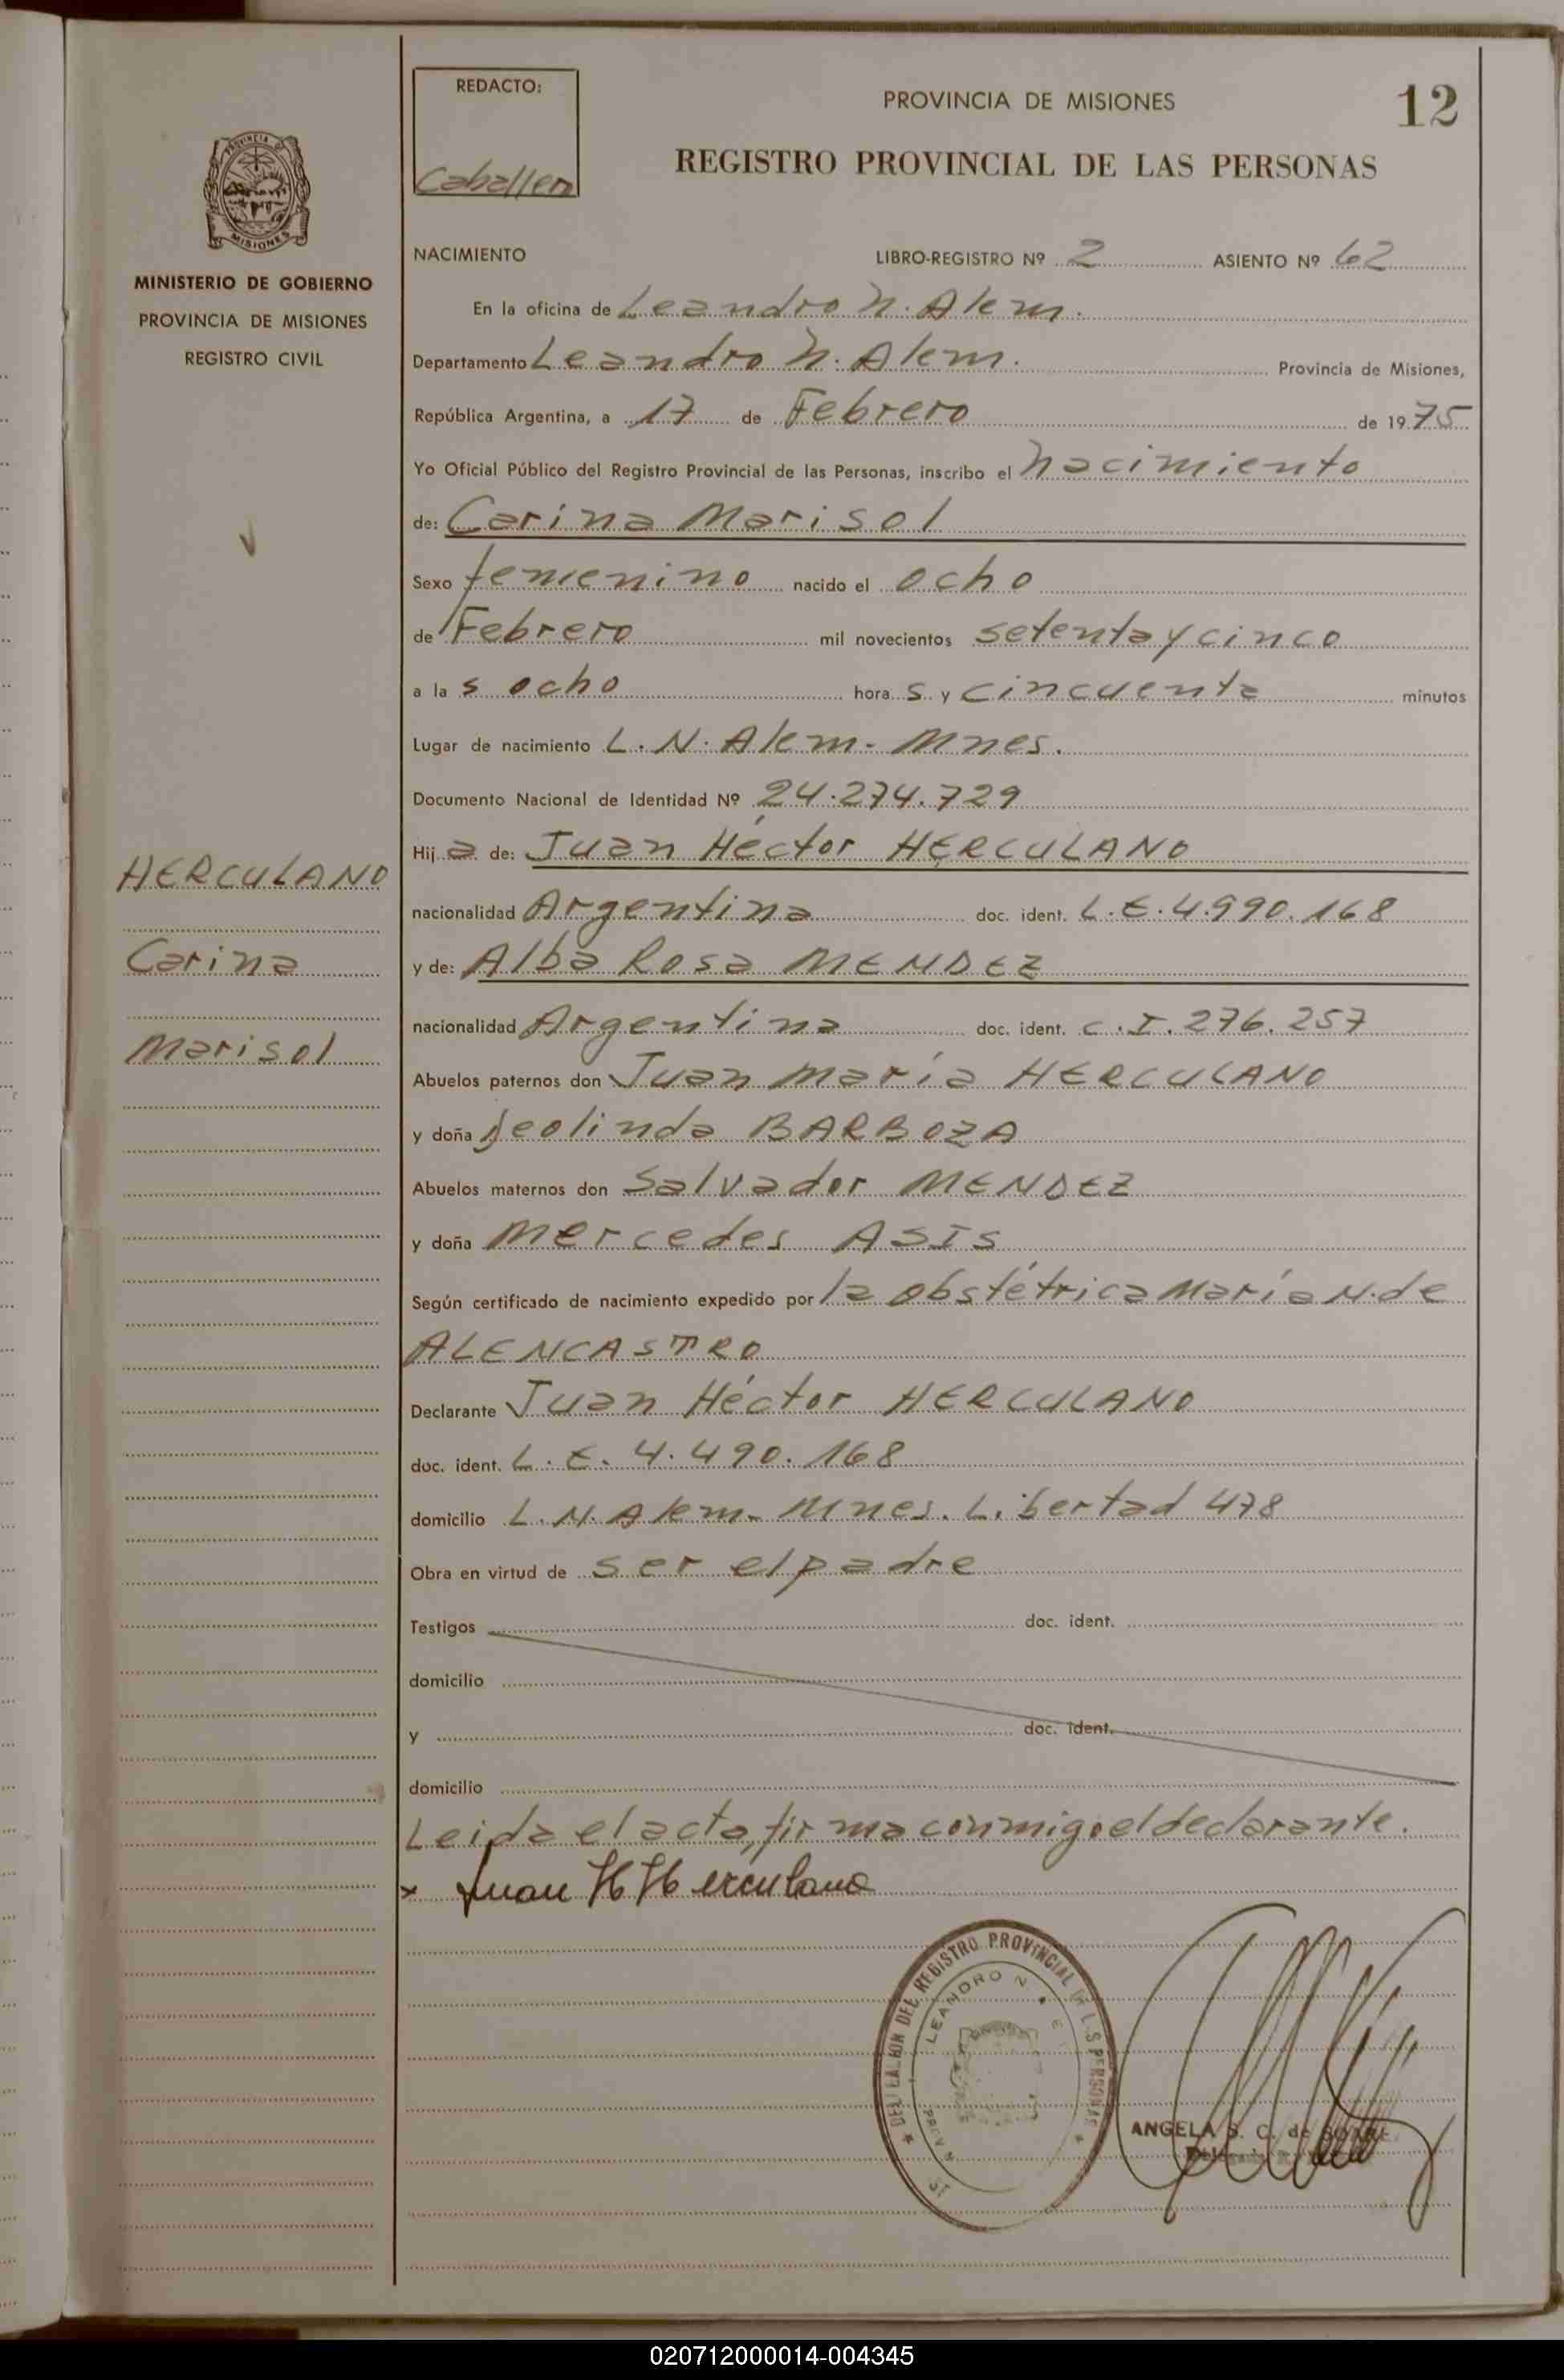 REDACTO:
Caballero
PROVINCIA DE MISIONES
12
REGISTRO PROVINCIAL DE LAS PERSONAS
PROVINCIA DE
MISIONES
MINISTERIO DE GOBIERNO
PROVINCIA DE MISIONES
REGISTRO CIVIL
HERCULANO
Carina
Marisol
NACIMIENTO LIBRO-REGISTRO Nº 2 ASIENTO Nº 62
En la oficina de Leandro N. Alem.
Departamento Leandro N. Alem. Provincia de Misiones,
República Argentina, a 17 de Febrero de 1975
Yo Oficial Público del Registro Provincial de las Personas, inscribo el nacimiento
de: Carina Marisol
Sexo femenino nacido el ocho
de Febrero mil novecientos setenta y cinco
a las ocho horas y cincuenta minutos
Lugar de nacimiento L. N. Alem. Mnes.
Documento Nacional de Identidad Nº 24.274.729
Hija de: Juan Héctor HERCULANO
nacionalidad Argentina doc. ident. L.E. 4.990.168
y de: Alba Rosa MENDEZ
nacionalidad Argentina doc. ident. C.I. 276.257
Abuelos paternos don Juan María HERCULANO
y doña Deolinda BARBOZA
Abuelos maternos don Salvador MENDEZ
y doña Mercedes ASIS
Según certificado de nacimiento expedido por la obstétrica María N. de
ALENCASTRO
Declarante Juan Héctor HERCULANO
doc. ident. L. E. 4.490.168
domicilio L. N. Alem. Mnes. Libertad 478
Obra en virtud de ser el padre
Testigos doc. ident.
domicilio
y doc. ident.
domicilio
Leida el acta, firma conmigo el declarante.
x Juan H Herculano
DEL REGISTRO PROVINCIAL PERSONAS
LEANDRO N
ANGELA S. C. de
020712000014-004345